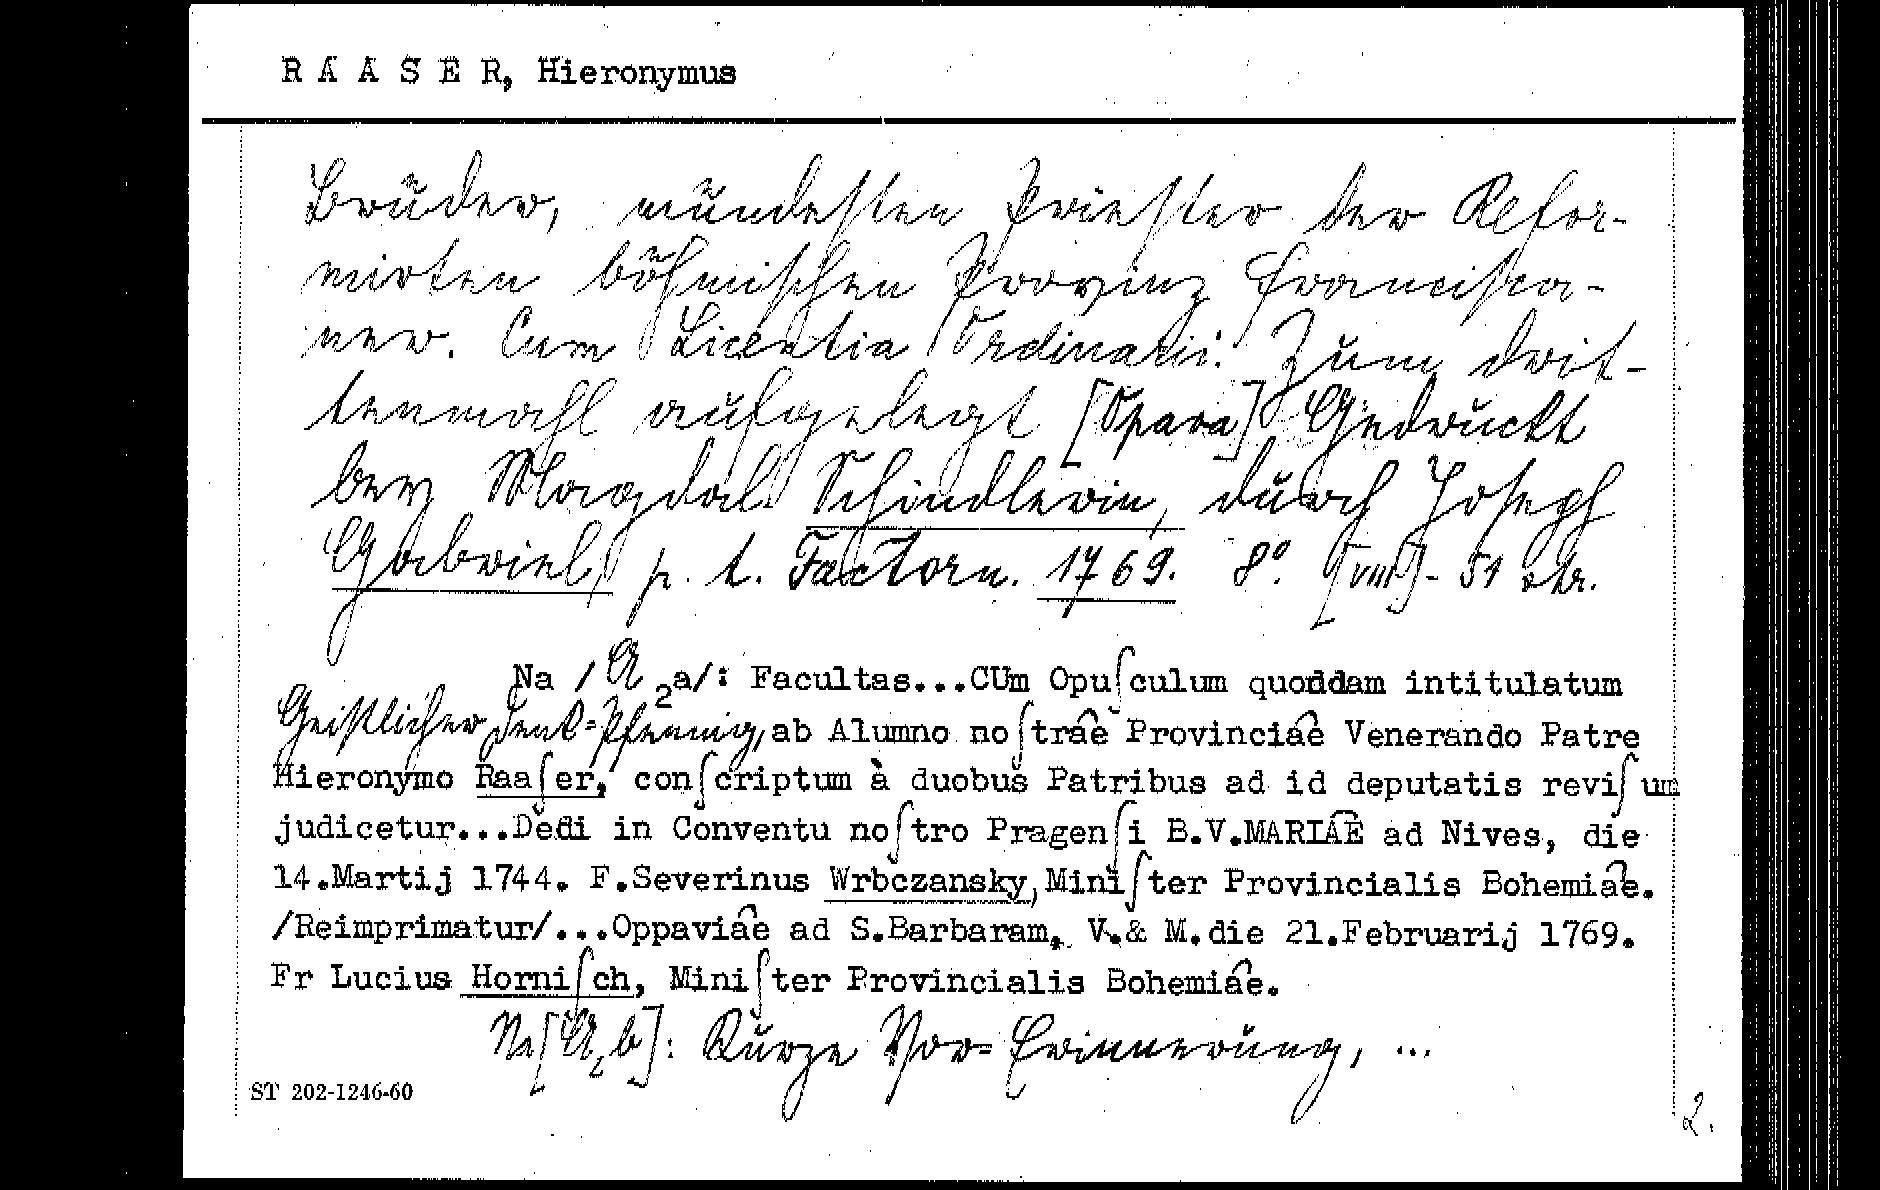 R A A S E R, Hieronymus
Brüder, mündesten Priester der Refor-
mirten böhmischen Provinz Francisca-
ner. Cum Licentia Ordinarii. Zum drit-
tenmahl aufgelegt [Opava] Gedruckt
bey Magdal. Schindlerin, durch Joseph
Gabriel, p. t. Factorn. 1769. 8° [VIII] - 51 str.
Na /A 2a/: Facultas...CUm Opuſculum quoddam intitulatum
Geistlicher Denk=Pfennig, ab Alumno noſtrae Provinciae Venerando Patre
Hieronymo Raaſer, conſcriptum à duobus Patribus ad id deputatis reviſum
judicetur...Dedi in Conventu noſtro Pragenſi B.V.MARIAE ad Nives, die
14.Martij 1744. F.Severinus Wrbczansky, Miniſter Provincialis Bohemiae.
/Reimprimatur/...Oppaviae ad S.Barbaram, V.& M.die 21.Februarij 1769.
Fr Lucius Horniſch, Miniſter Provincialis Bohemiae.
Na [A2b]: Kurze Vor=Erinnerung, ...
ST 202-1246-60
2.